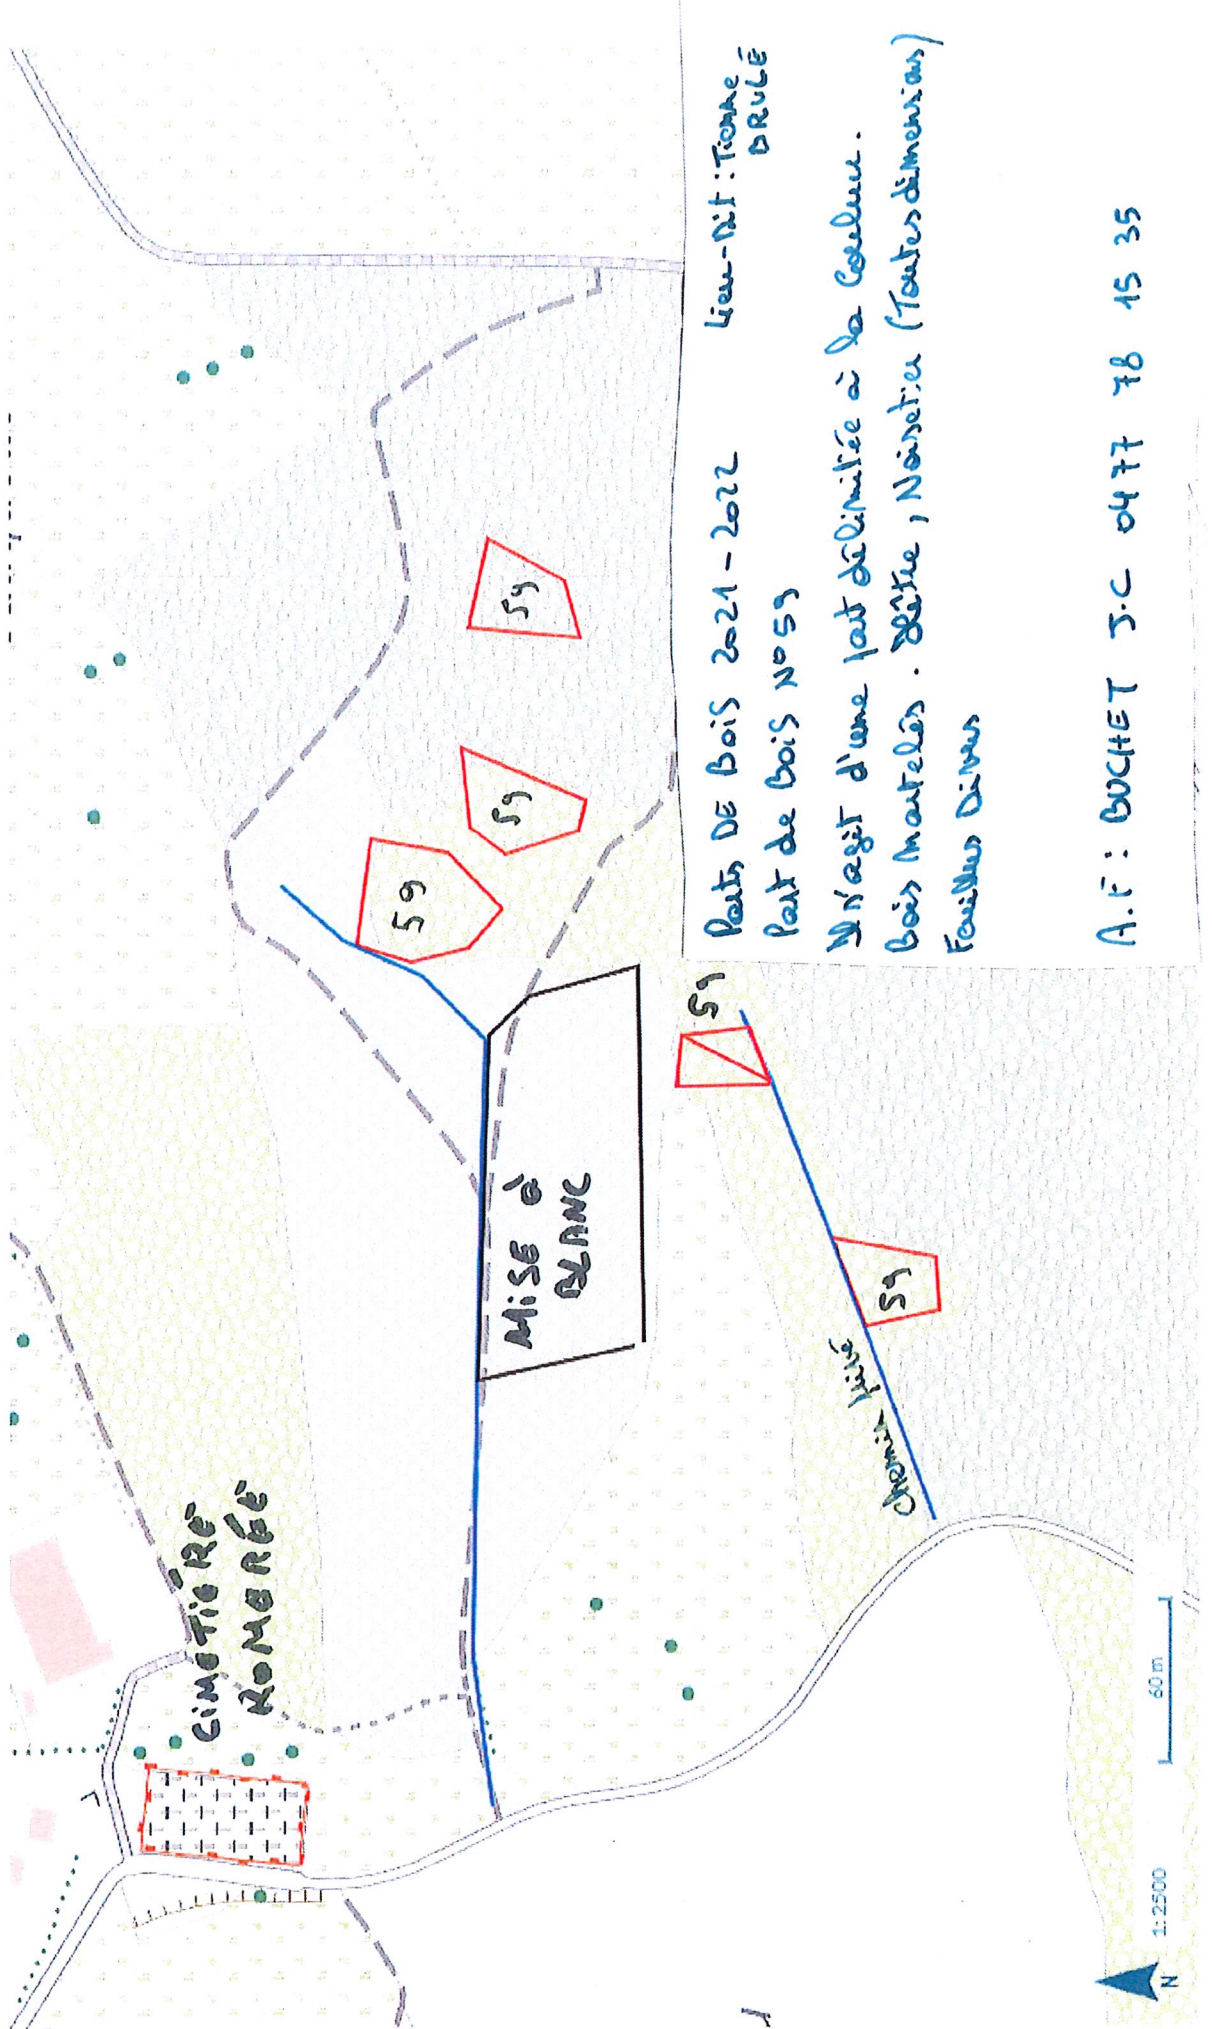 CIMETIÈRE
ROMERÉE
MISE à
BLANC
59
59
59
59
59
chemin privé
Parts DE BOIS 2021-2022
Lieu-Dit : Tienne
DRULÉ
Part de Bois N°59
Il s'agit d'une part délimitée à la Couleur.
Bois martelés. Hêtre, Noisetier (Toutes dimensions)
Feuillus Divers
A.F : BUCHET J.C 0477 78 15 35
N
1:2500
60 m